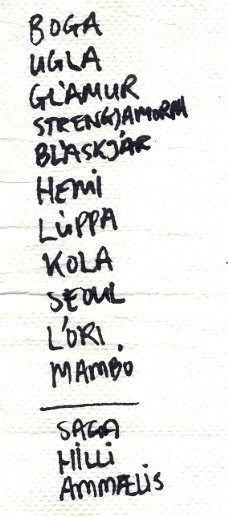 BOGA
UGLA
GLÁMUR
STRENGJAMORRA
BLÁSKJÁR
HEMI
LÚPPA
KOLA
SEOUL
LÓRI
MAMBO
SAGA
HILLI
AMMÆLIS